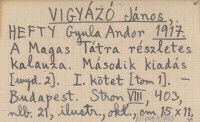 VIGYÁZÓ János,
HEFTY Gyula Andor 1917.
A Magas Tátra részletes
kalauza. Második kiadás
[wyd. 2]. I. kötet [tom 1]. -
Budapest. Stron VIII, 403,
nlb. 21, ilustr., okł., cm 15 x 11.